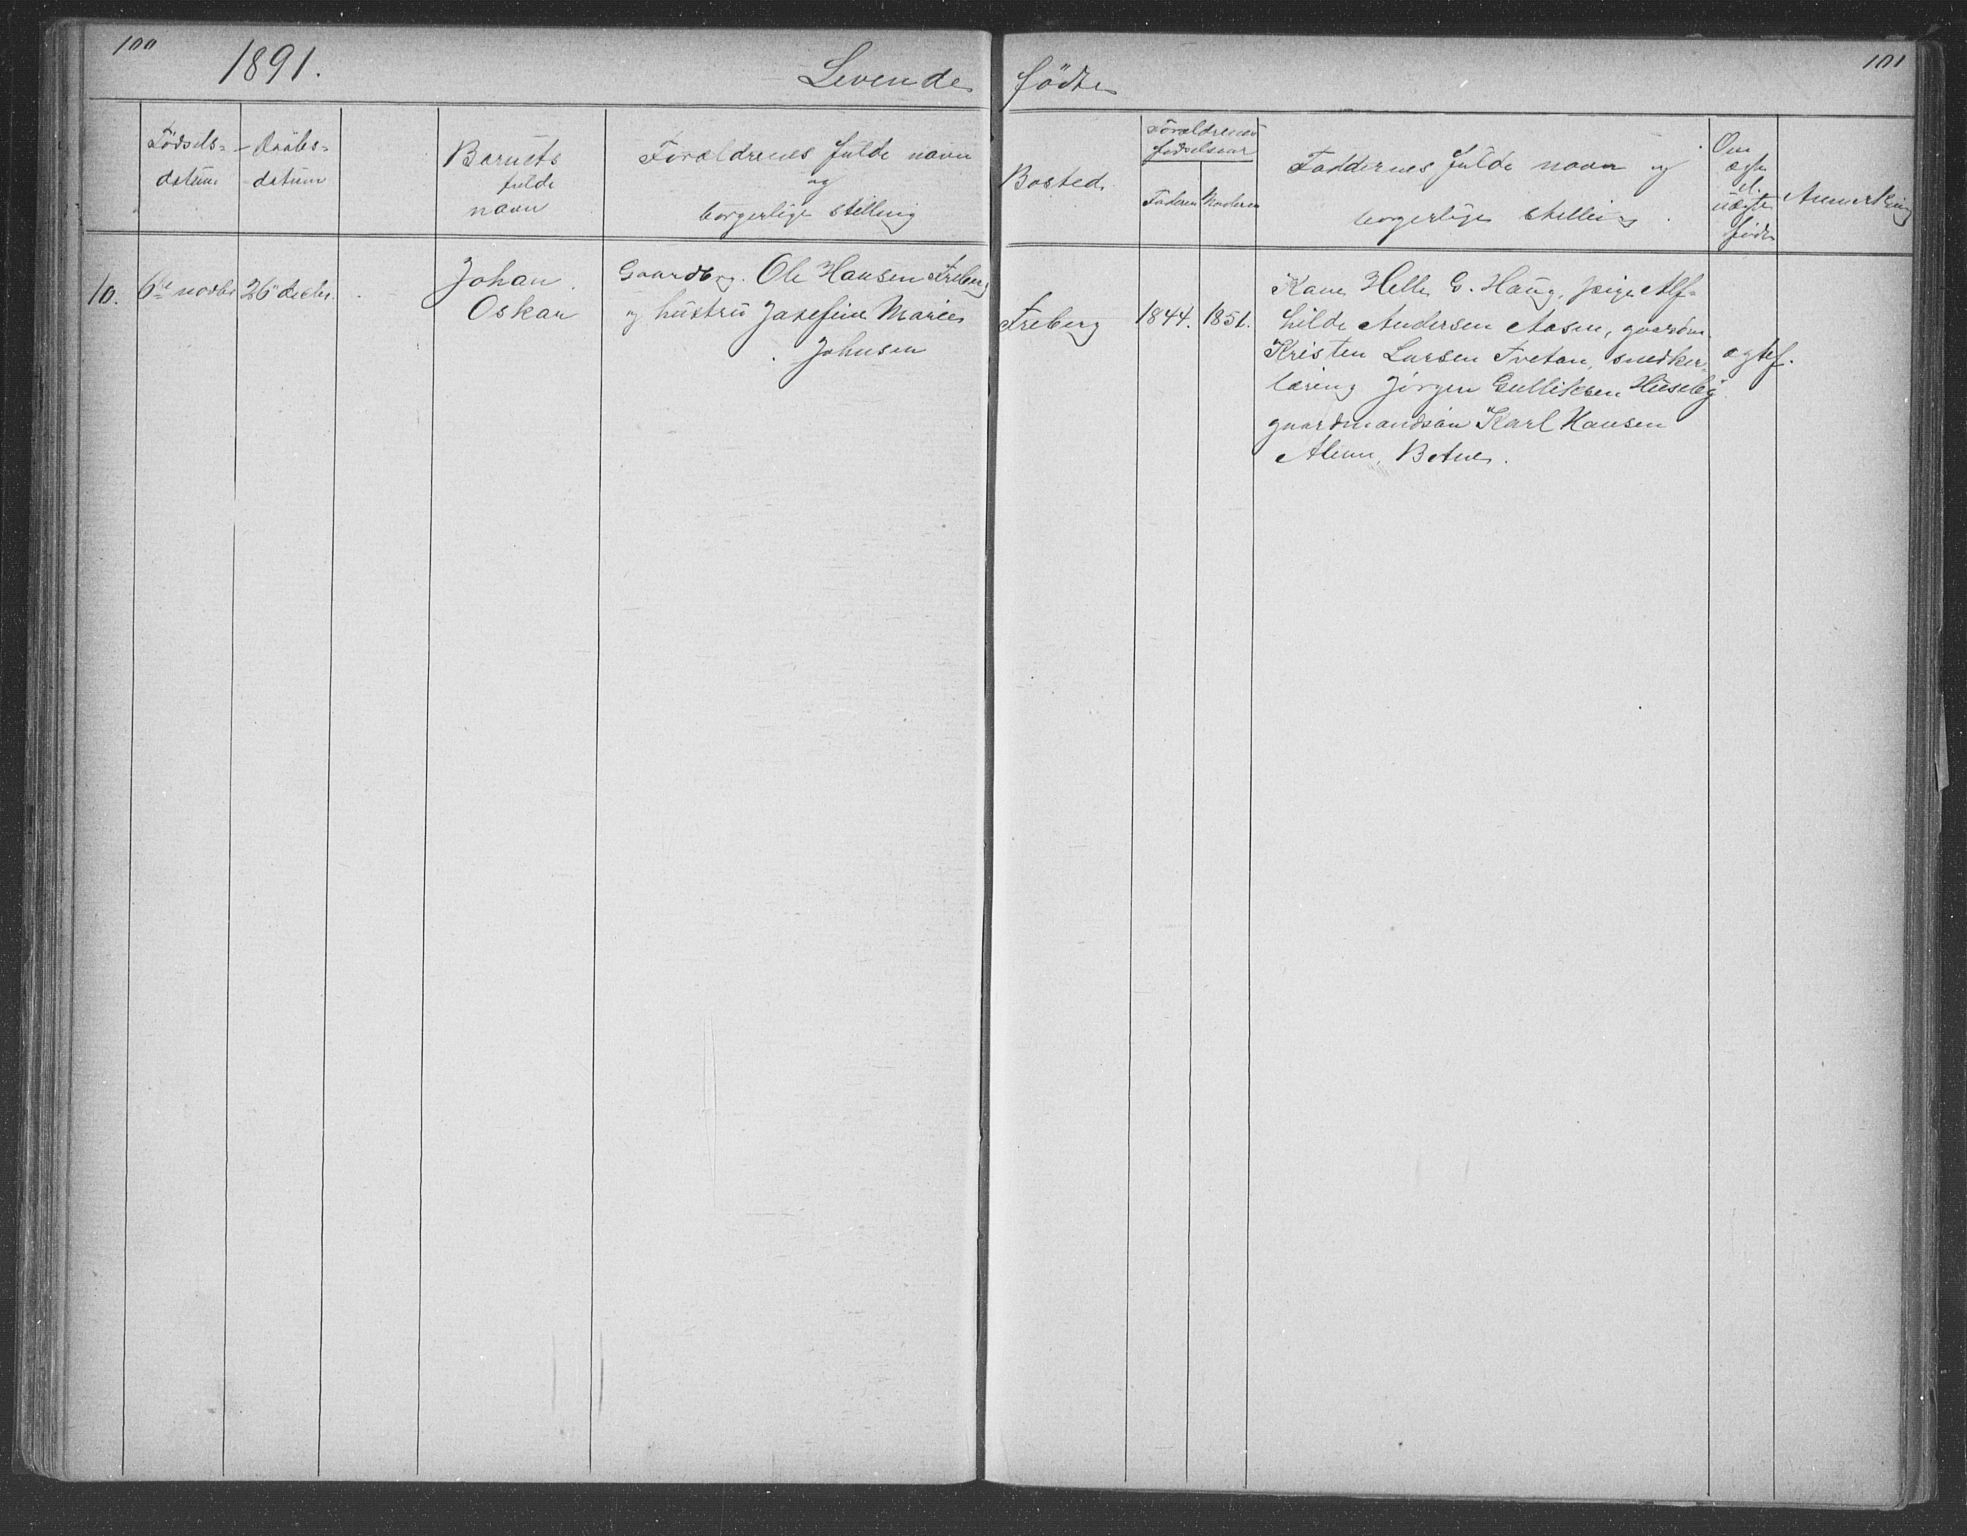 100
1891.
Levende
födte
101
Födsels-
datum
Daabs-
datum
Barnets
fulde
navn
Forældrenes fulde navn
og
borgerlige stilling
Bosted.
Forældrenes
fødselsaar
Faderen
Moderen
Faddernes fulde navn og
borgerlige stilling
Om
ægte
el.
uægte
født
Anmerkning
10.
6te novbr
26" decbr.
Johan
Oskar
Gaardbrg. Ole Hansen Freberg
og hustru Josefine Marie
Johnsen
Freberg
1844.
1851.
Kone Helle G. Haug, pige Alf-
hilde Andersen Aasen,
Kristen Larsen Tvetan, snedker-
læring Jørgen Gulliksen Huseby
gaardmandssøn Karl Hansen
Alum, Botne.
ægtef.